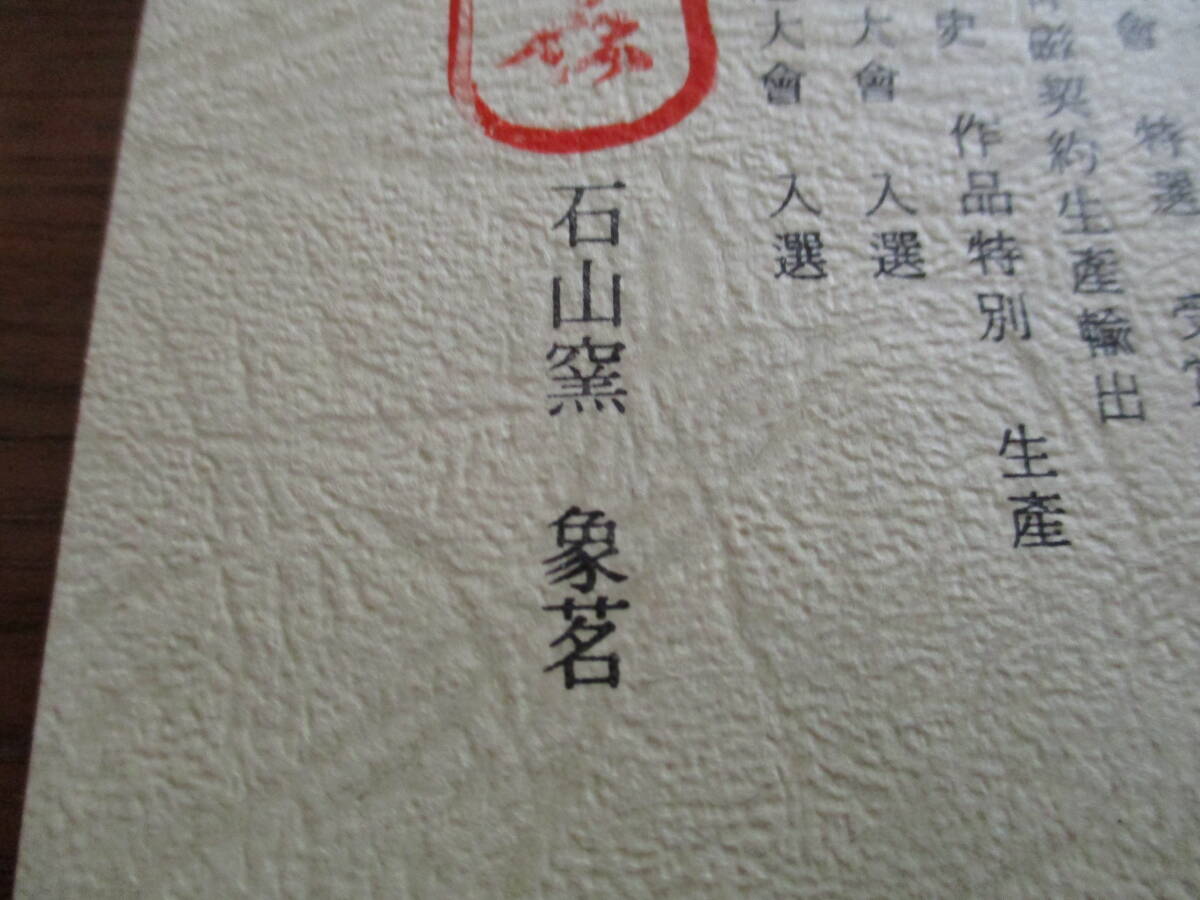 會 特選 受
磁契約生產輸出
史 作品特別 生產
大會 入選
大會 入選
石山窯 象茗